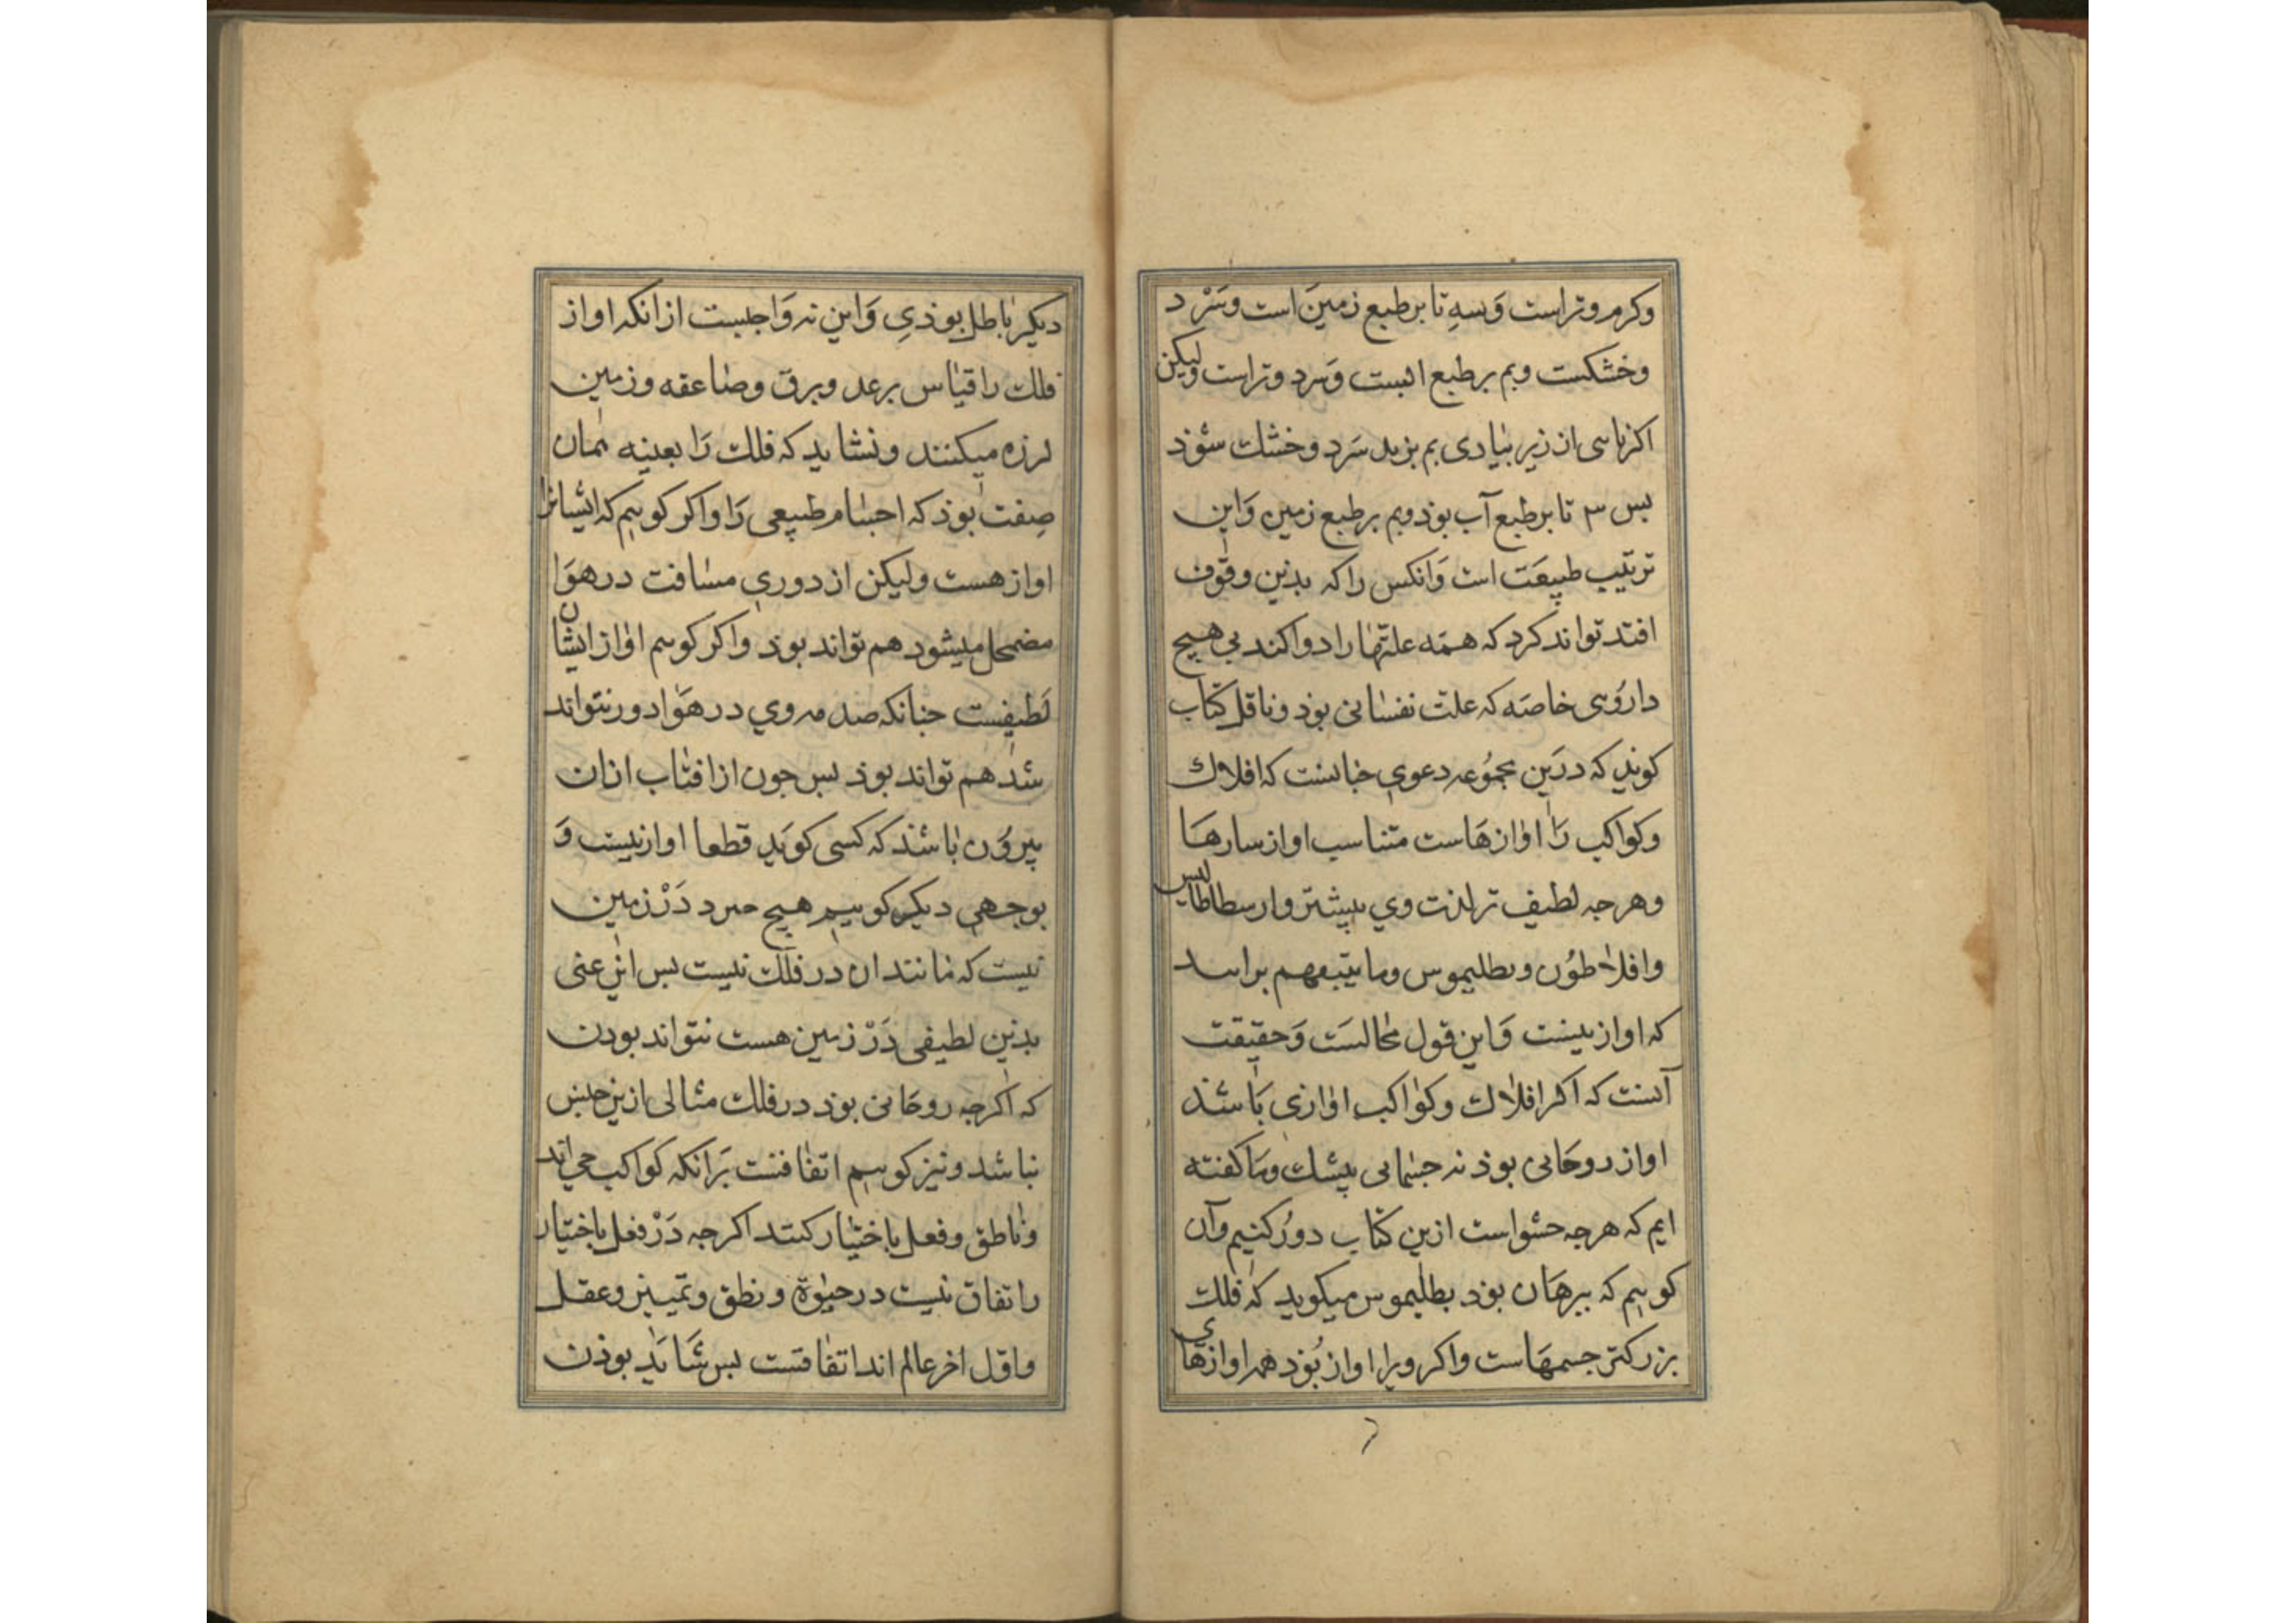 وکرم وتراست وَسهِ تا برطبع زمینَ است وسَرْد
وخشکست وبم برطبع ابست وَسرد وتراست ولیکن
اکر تا سی از زیر بنیادی بم بزید سَرد وخشك سٔوذ
بس س تا برطبع آب بوذ وبم برطبع زمین وَاین
ترتیب طبیعَت است وَانکس راکه بذین وقوف
افتد تواند کرد که همَه علتها را دوا کند بی هیچ
دارُوی خاصَه که علت نفسانی بوذ وناقل کتاب
کویذ که درَین مجمُوعه دعوی جنانست که افلاك
وکواکب رَا اوازهَاست متناسب اواز سازهَا
وهرجه لطیف تر لذت وی بیشتر وارسطاطالیس
وافلاطوُن وبطلیموس وما یتبعهم برانند
که اواز نیست وَاین قول محالست وَحقیقت
آنست که اکر افلاك وکواکب اوازی باشذ
اواز روحَانی بوذ نه جسمانی بیشك وما کفته
ایم که هرجه حشواست ازین کتاب دوُر کنیم وآن
کوییم که ببرهَان بوذ بطلیموس میکوید که فلك
بزرکتر جسمهَاست واکر ویرا اواز بُوذ همه اوازهَای
دیکر باطل بوذیِ وَاین نه وَاجبست ازانکه اواز
فلك را قیاس برعد وبرق وصاعقه وزمین
لرزه میکنند ونشاید که فلك رَا بعینه همان
صِفت بوذ که اجسام طبیعی رَا واکر کوییم که ایشانرا
اواز هست ولیکن از دوریِ مسافت در هوَا
مضمحل میشود هم تواند بوذ واکر کوییم اواز ایشان
لَطیفست جنانکه صدمه وی در هَوَا دور نتواند
شد هم تواند بوذ بس جون از افتاب ازان
بیروُن باشذ که کسی کویَد قطعا اواز نیست وَ
بوجهیِ دیکر کوییم هیچ جیز دَرْ زمین
نیست که مانند ان در فلك نیست بس این معنی
بذین لطیفی دَرْ زمین هست نتواند بودن
که اکرجه روحَانی بوذ در فلك مثالی ازین جنس
نباشد ونیز کوییم اتفاقست بَرانکه کواکب حی اند
وناطق وفعل باختیار کنند اکرجه دَرْ فعل باختیار
را تفاق نیست در حیوة ونطق وتمییز وعقل
واوّل اخر عالم اند اتفاقست بس شاید بوذن